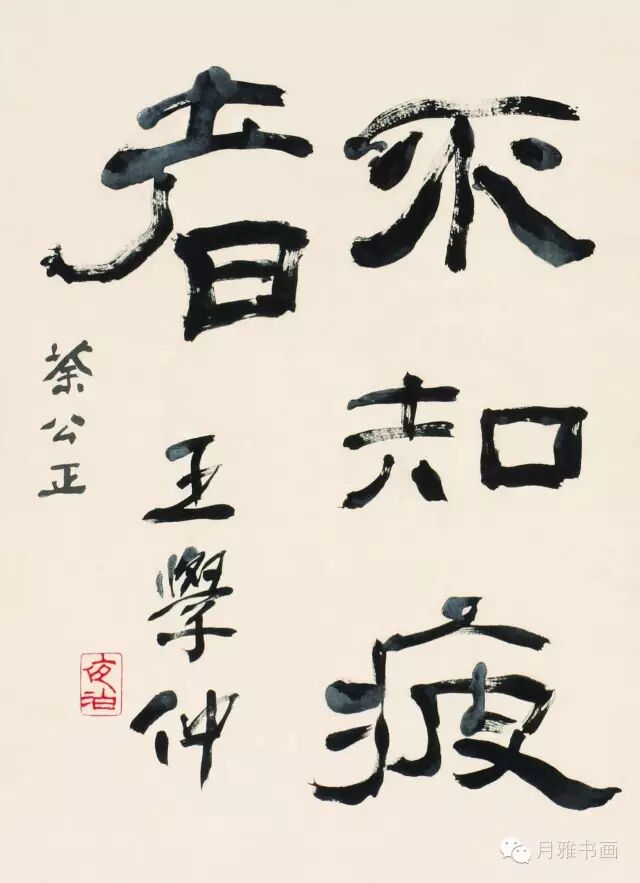 不知疲
者
王學仲
荼公正
夜泊
月雅书画